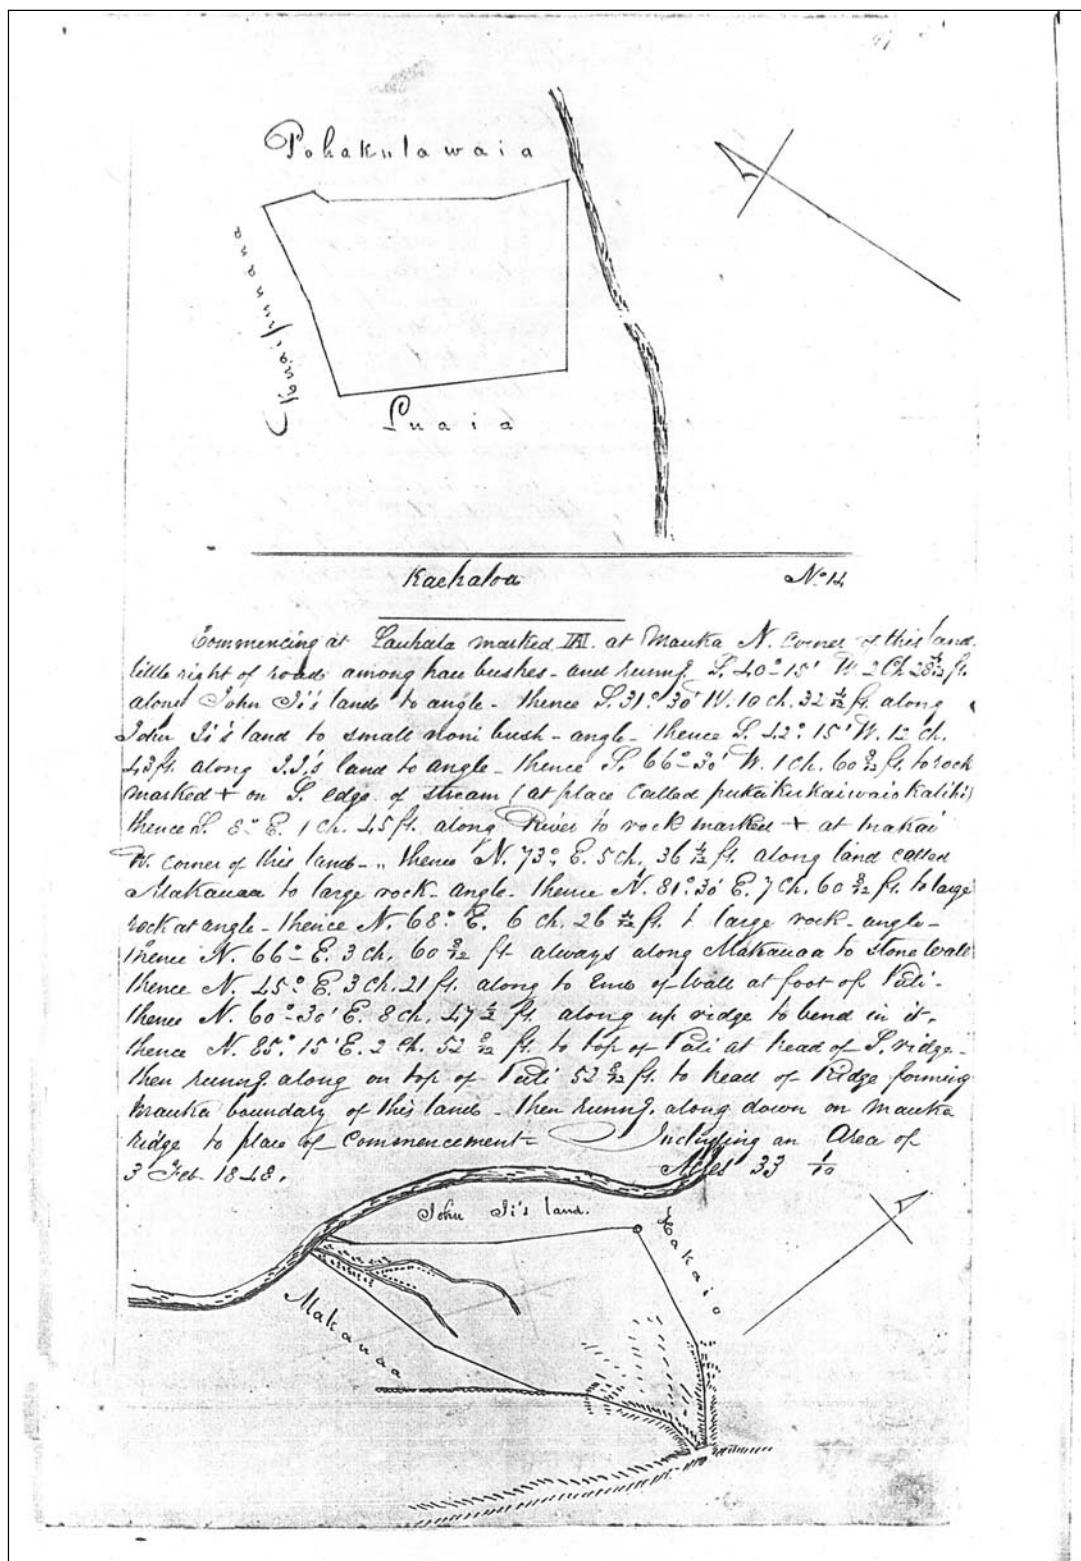 Pohakulawaia
Luaia
Kaehaloa No 14
Commencing at Lauhala marked at Mauka N. corner of this land
little right of road among hau bushes - and runng. S. 40° 15' W. 2 Ch
along John Ii's land to angle - thence S. 31° 30' W. 10 ch. 32 4/12 ft. along
John Ii's land to small noni bush - angle - thence S. 42° 15' W. 12 Ch.
43 ft. along J.Ii's land to angle - thence S. 66° 30' W. 1 Ch. 60 8/12 ft. to rock
marked + on S. edge of stream (at place called
thence S. 8° E. 1 ch. 45 ft. along River to rock marked + at makai
W. corner of this land - thence N. 73° E. 5 ch. 36 4/12 ft. along land called
Makauaa to large rock - angle - thence N. 81° 30' E. 7 Ch. 60 8/12 ft. to large
rock at angle - thence N. 68° E. 6 ch. 26 4/12 ft. t large rock - angle -
thence N. 66° E. 3 ch. 60 8/12 ft always along Makauaa to stone wall
thence N. 45° E. 3 Ch. 21 ft. along to End of wall at foot of Pali -
thence N. 60° 30' E. 8 ch. 47 ft. along up ridge to bend in it.
thence N. 85° 15' E. 2 Ch. 52 8/12 ft. to top of Pali at head of S. ridge -
then runng. along on top of Pali 52 8/12 ft. to head of Ridge forming
mauka boundary of this land - then runng. along down on mauka
ridge to place of commencement - Including an Area of
3 Feb. 1848. Acres 33 1/10
John Ii's land.
Makauaa